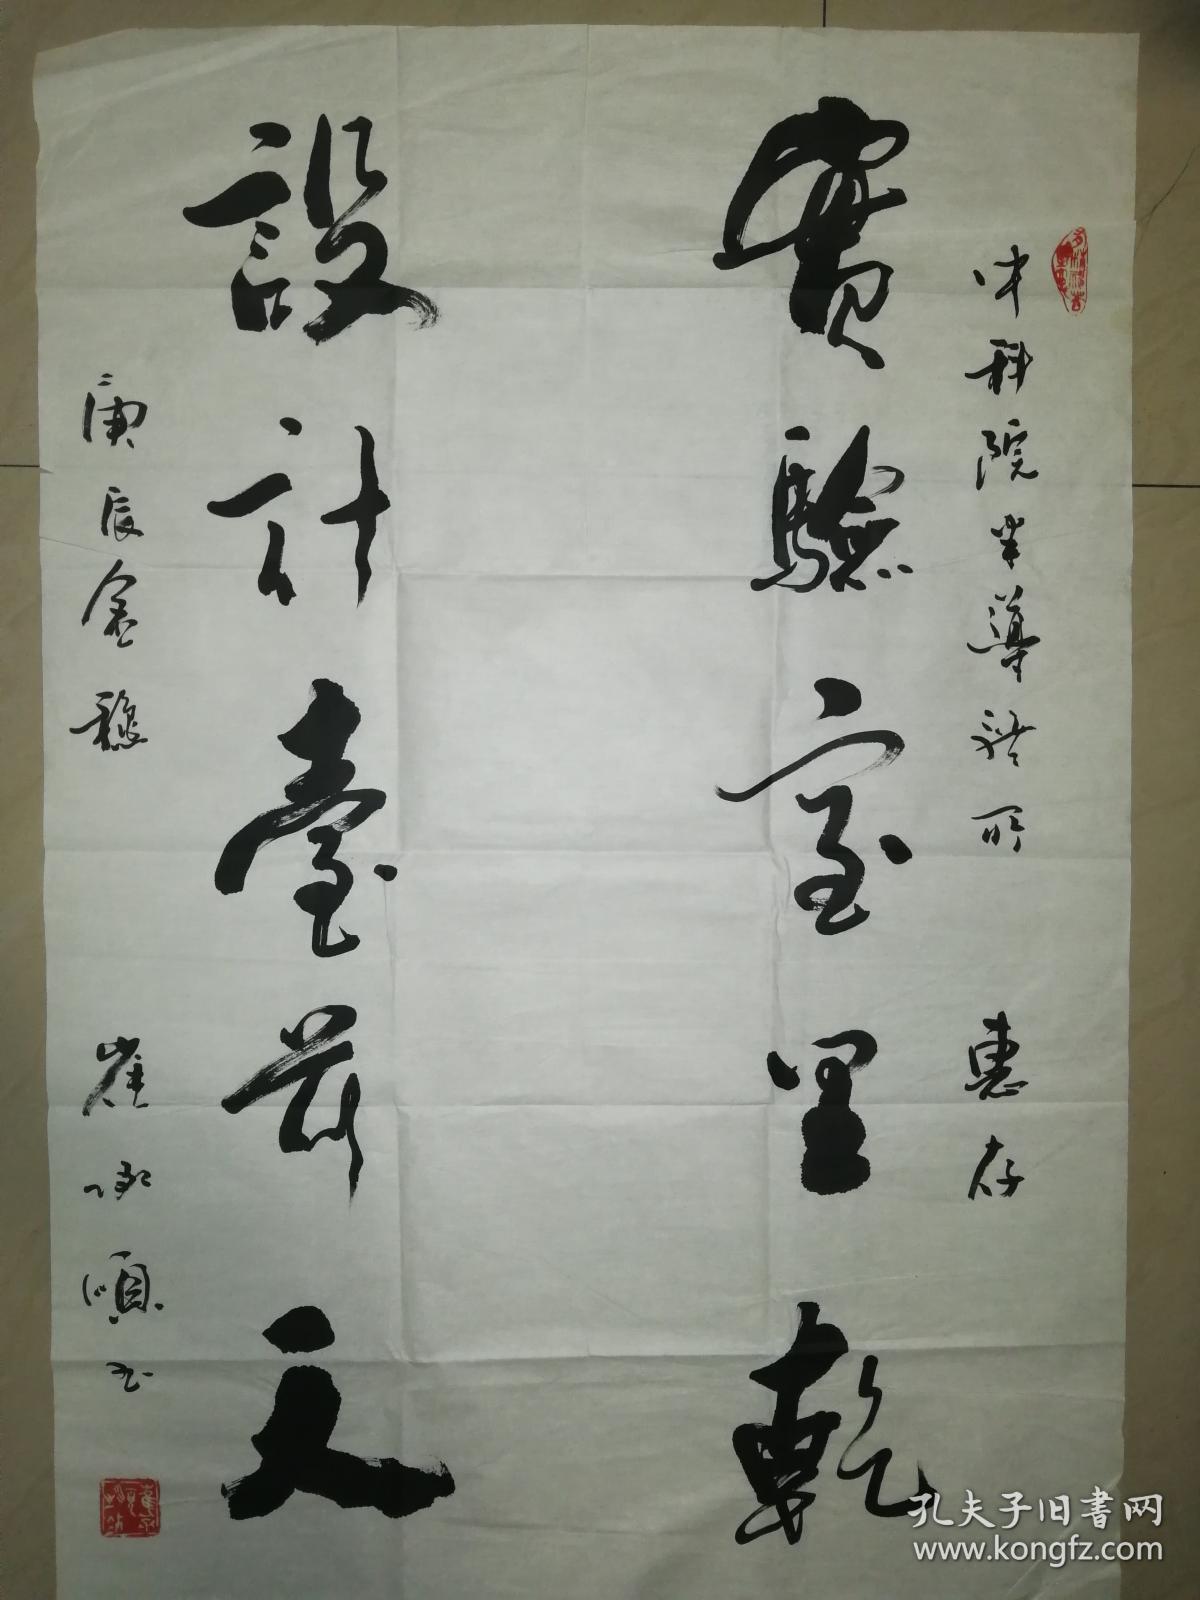 中科院半導體所 惠存
實驗室里乾
設計臺前天
庚辰金穐 崔承頊书
孔夫子旧書网
www.kongfz.com